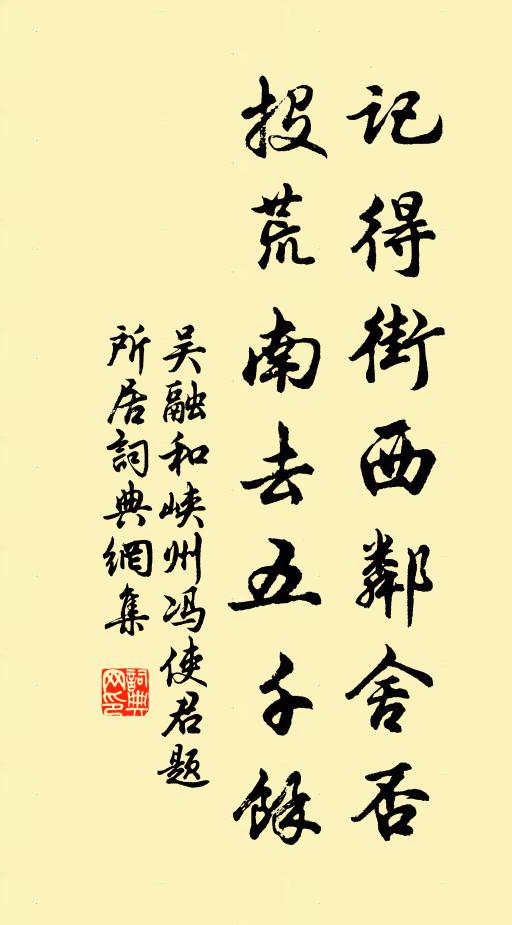 记得街西鄰舍否
投荒南去五千餘
吴融和峡州冯使君题
所居詞典網集
詞典网印